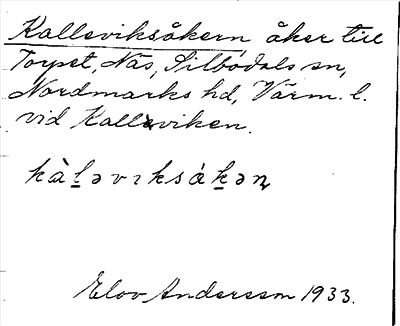 Kalleviksåkern, åker till
Torpet, Näs, Silbodals sn,
Nordmarks hd, Värm. l.
vid Kalleviken.
kàl̠əvıksák̠əɳ
Elov Andersson 1933.